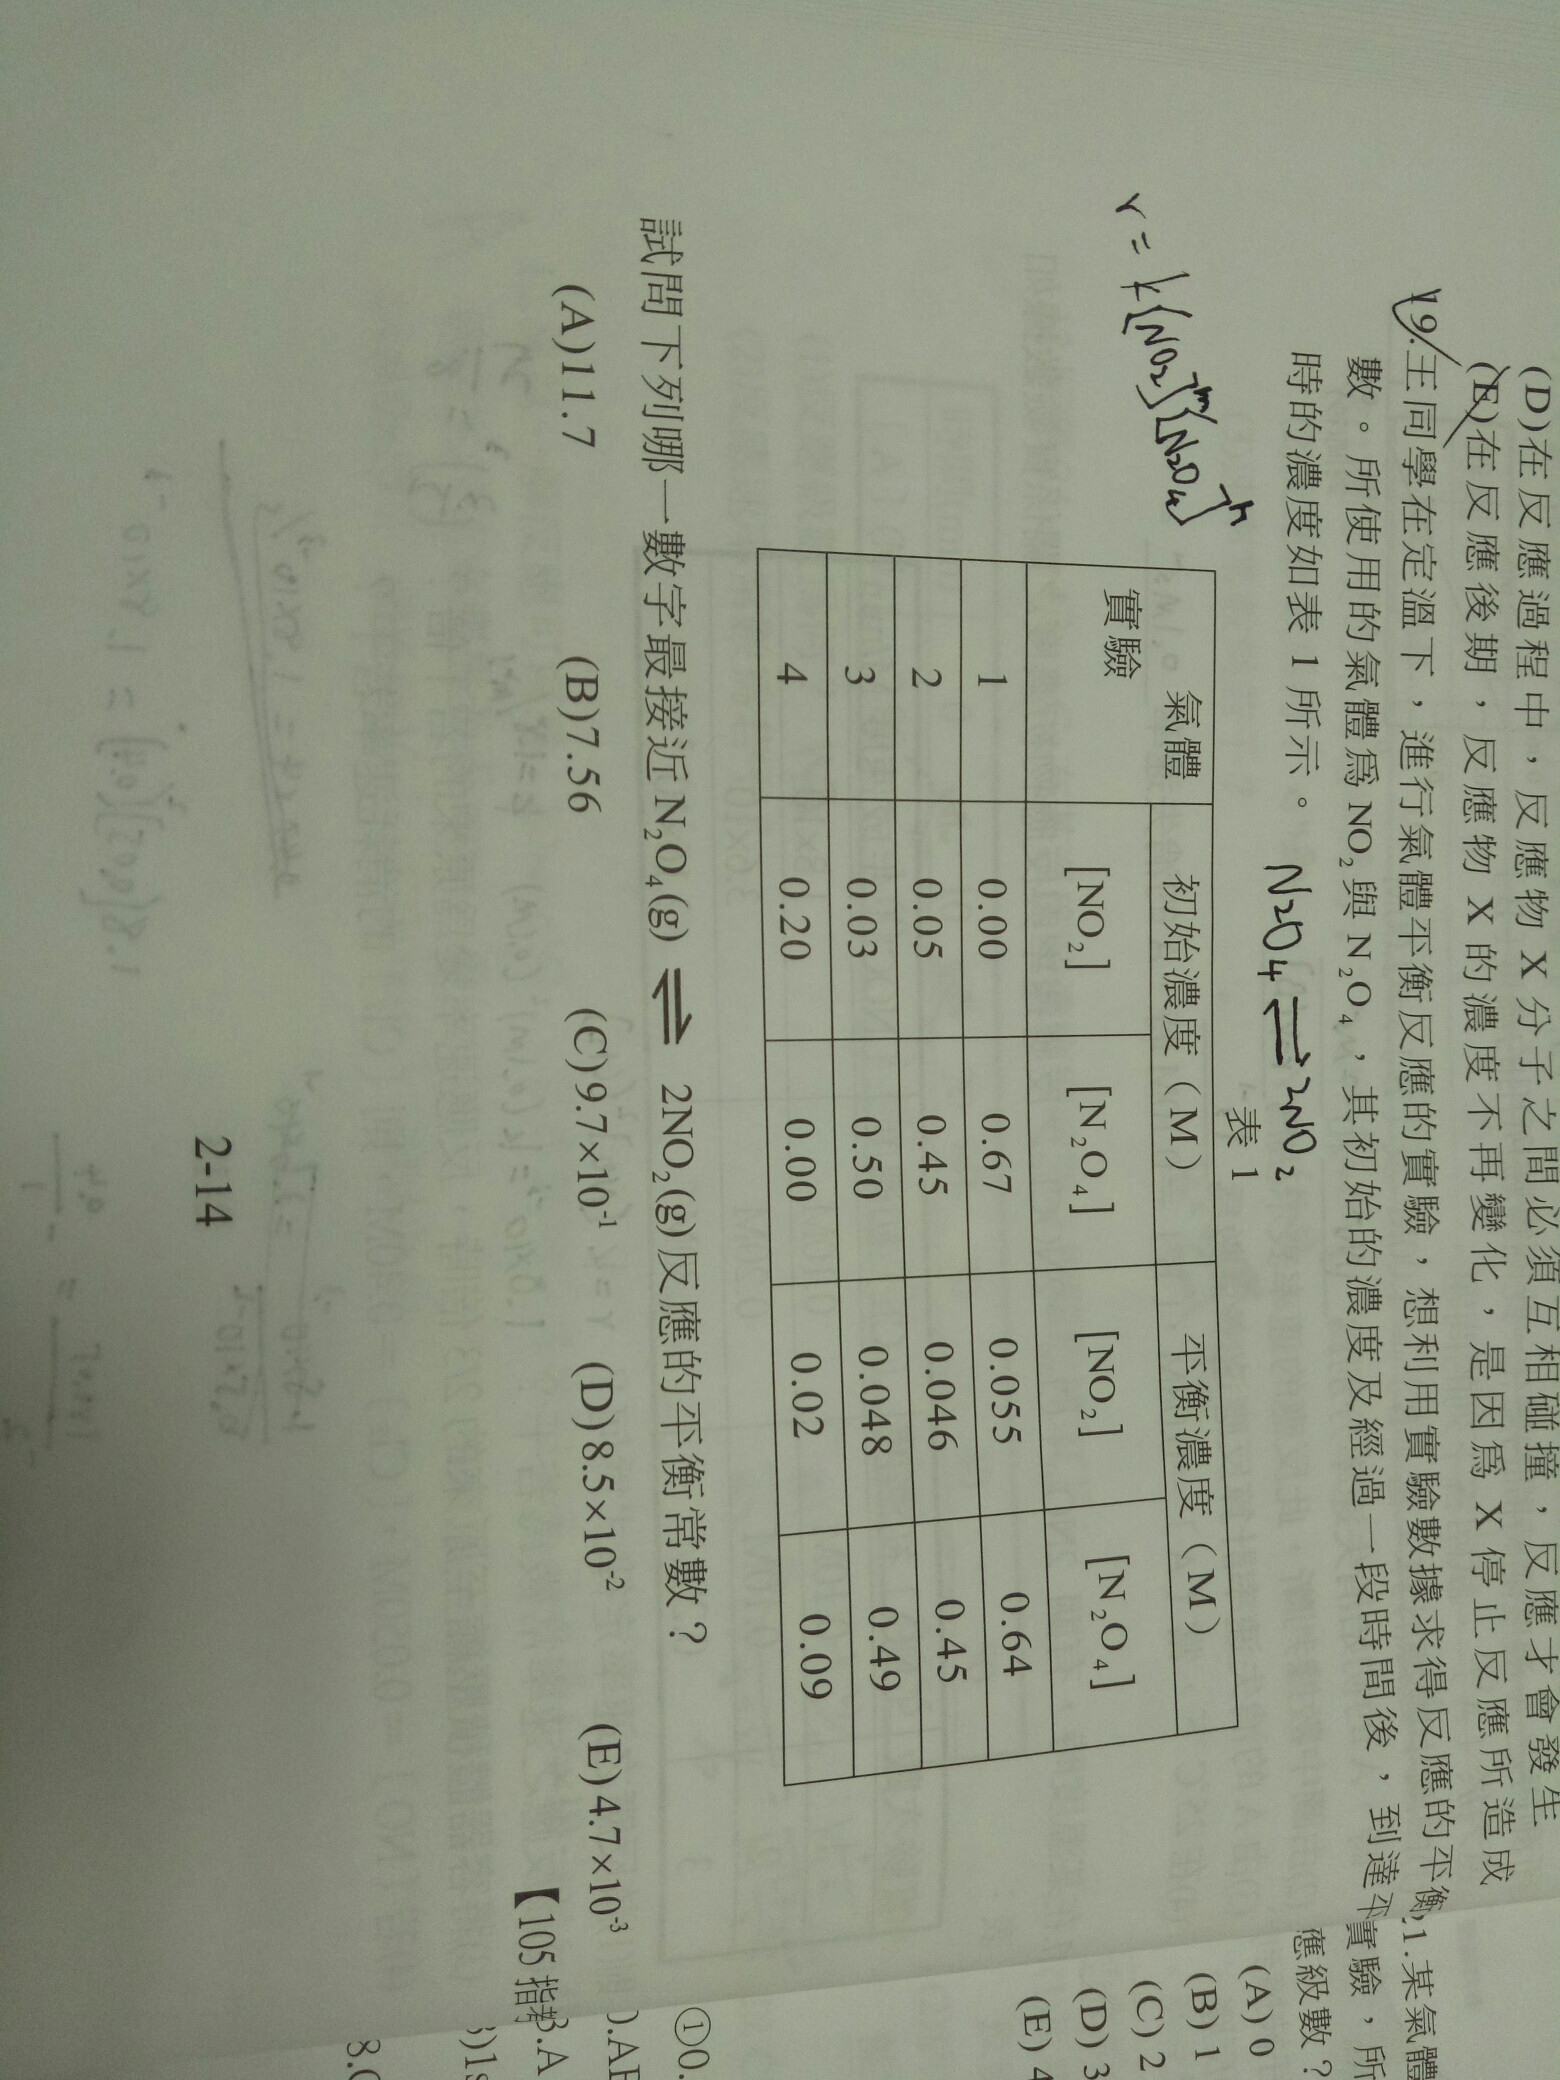 (D)在反應過程中，反應物 X 分子之間必須互相碰撞，反應才會發生
(E)在反應後期，反應物 X 的濃度不再變化，是因為 X 停止反應所造成
19.王同學在定溫下，進行氣體平衡反應的實驗，想利用實驗數據求得反應的平衡
數。所使用的氣體為 NO₂與 N₂O₄，其初始的濃度及經過一段時間後，到達平
時的濃度如表 1 所示。
N₂O₄ ⇌ 2NO₂
表 1
r = k[NO₂]ᵐ[N₂O₄]ⁿ
氣體 初始濃度（M） 平衡濃度（M）
實驗 [NO₂] [N₂O₄] [NO₂] [N₂O₄]
1 0.00 0.67 0.055 0.64
2 0.05 0.45 0.046 0.45
3 0.03 0.50 0.048 0.49
4 0.20 0.00 0.02 0.09
試問下列哪一數字最接近 N₂O₄(g) ⇌ 2NO₂(g)反應的平衡常數？
(A)11.7 (B)7.56 (C)9.7×10⁻¹ (D)8.5×10⁻² (E)4.7×10⁻³
【105 指
2-14
1.某氣體
實驗，所
應級數？
(A) 0
(B) 1
(C) 2
(D) 3
(E) 4
①0.
3.A